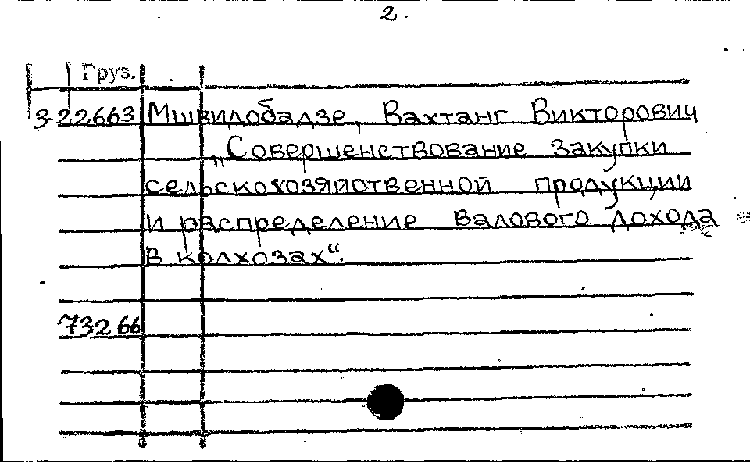 2.
Груз.
3-22663 Мшвилобадзе, Вахтанг Викторович
„Совершенствование закупки
сельскохозяйственной продукции
и распределение валового дохода
в колхозах“.
73266